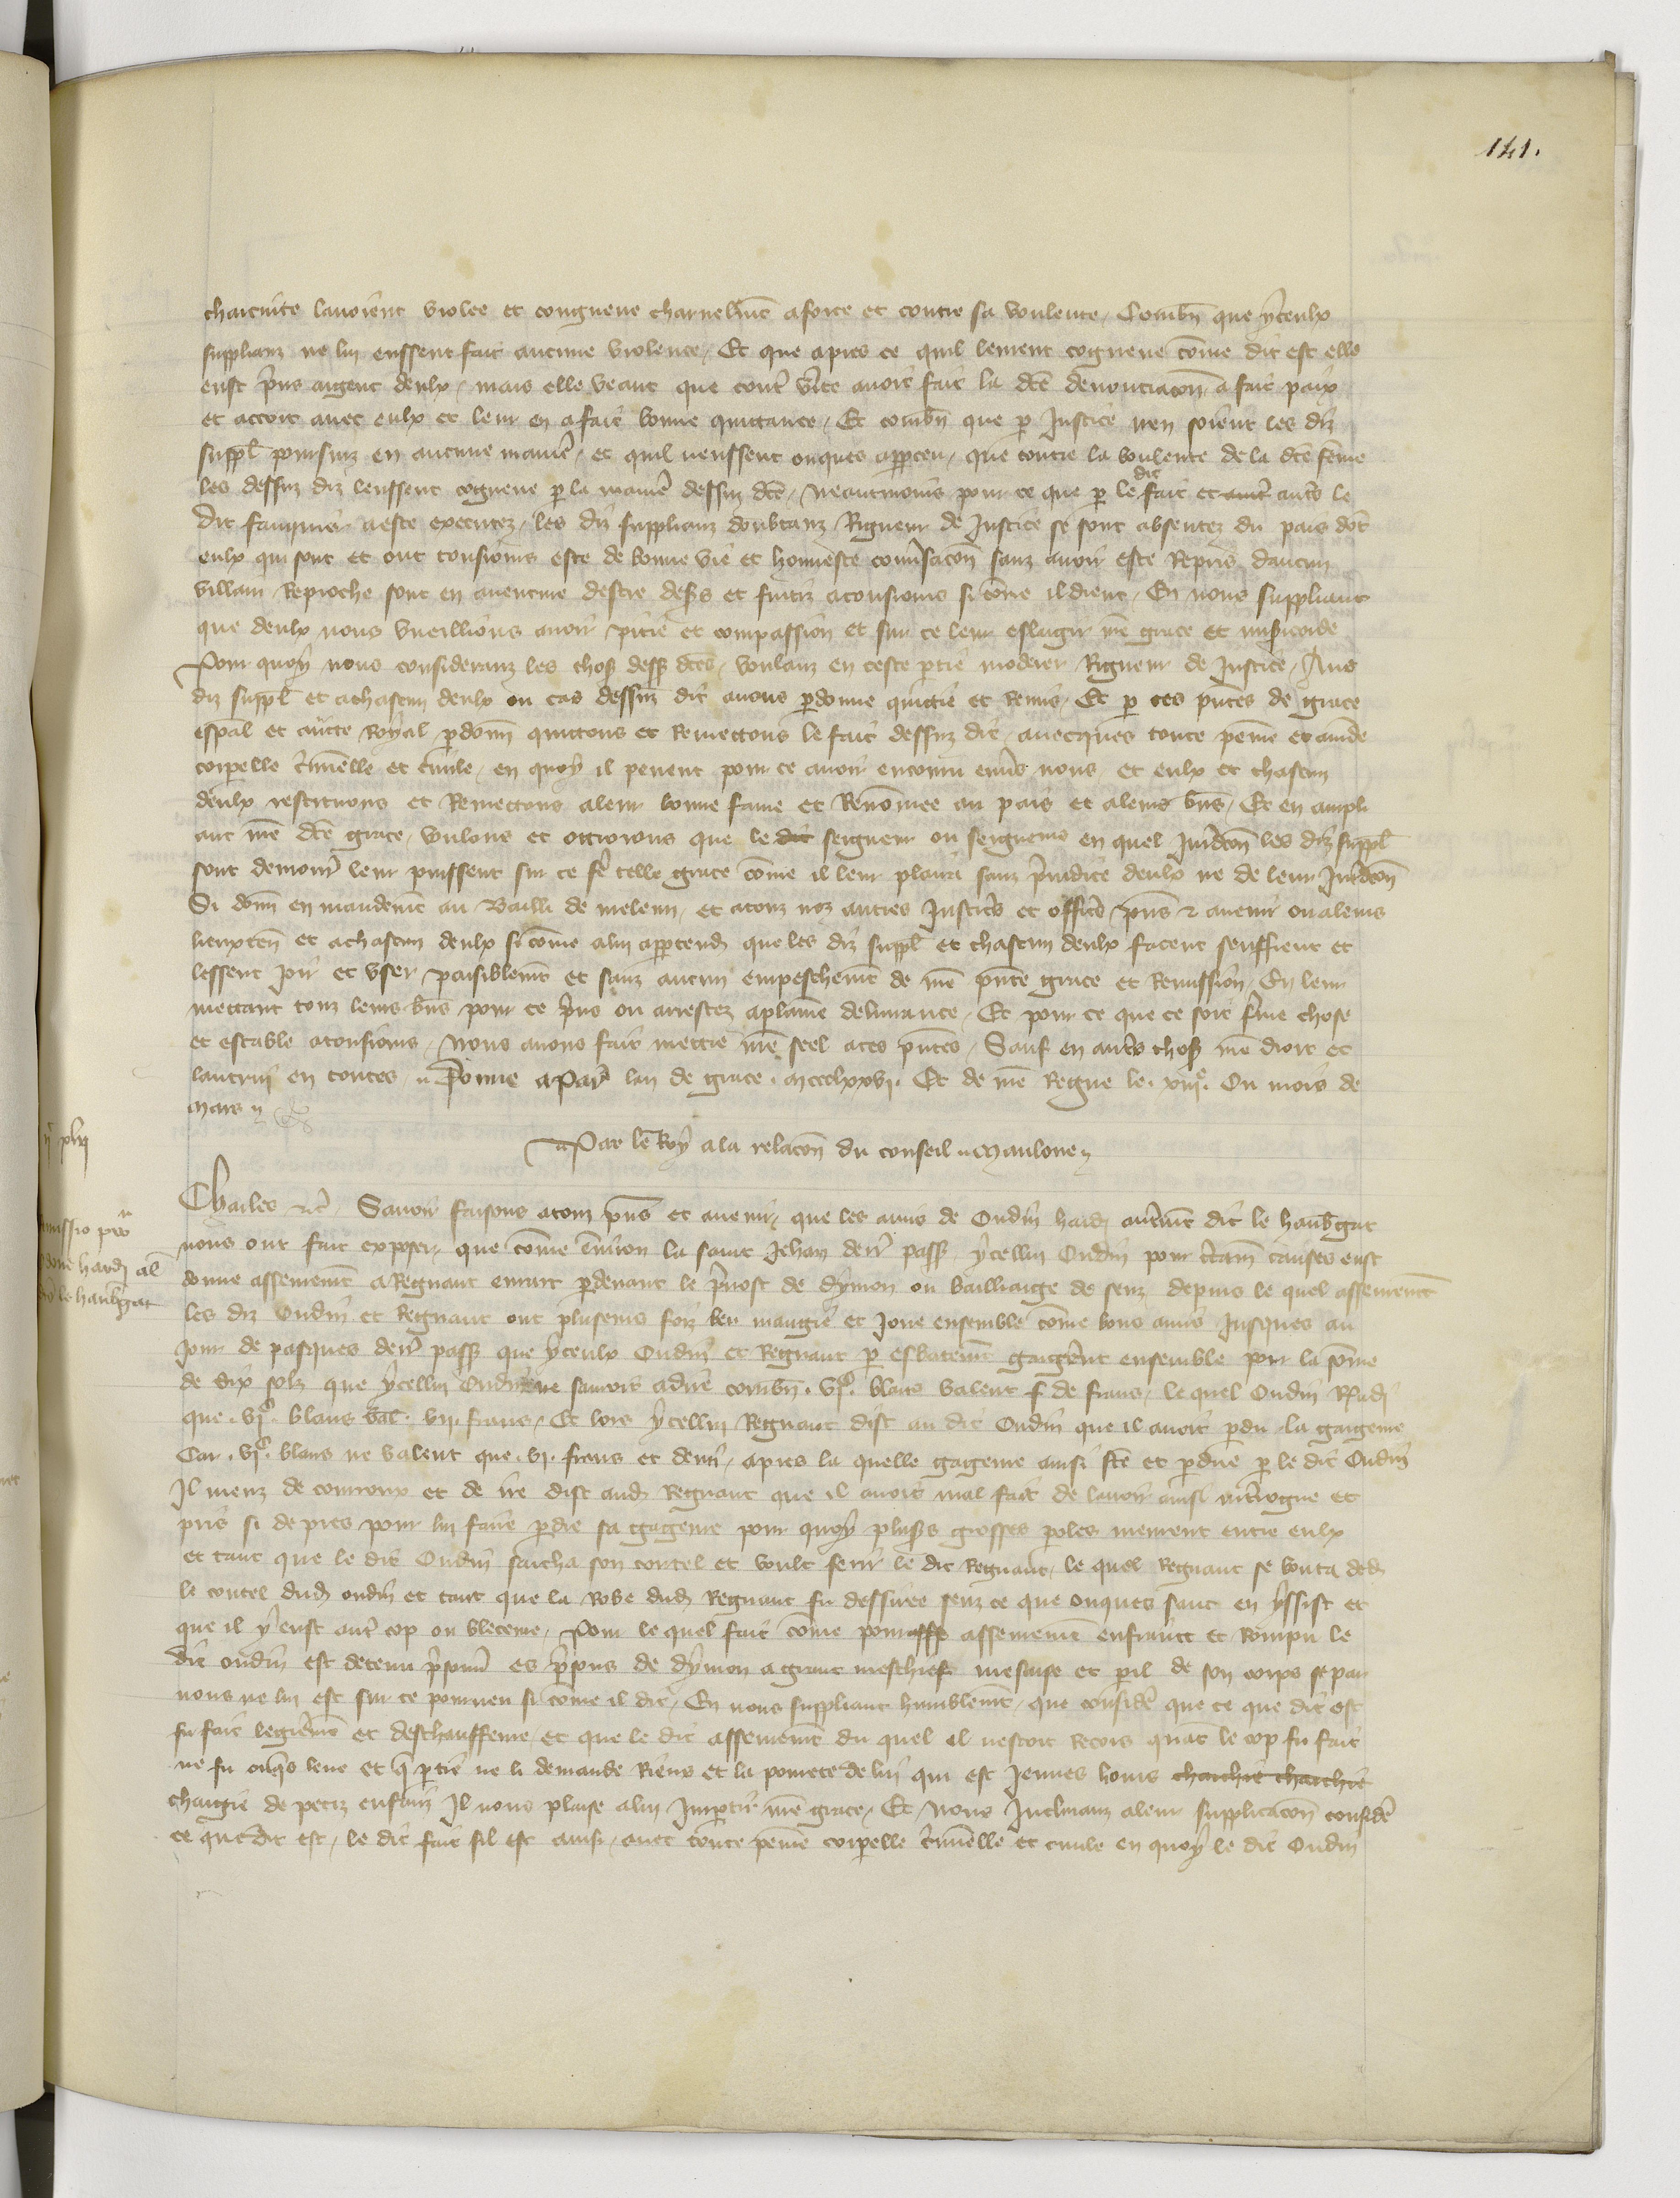 141.
charcuite lavoient violee et congneue charnelmt a force et contre sa voulente, Combn que yceulx
supplianz ne lui eussent fait aucune violence, Et que apres ce quil leurent cogneue come dit est elle
eust prins argent deulx, mais elle veant que avoit fait la dce denonciacon a fait paix
et accort avec eulx et leur en a fait bonne quittance, Et combn que p Justice nen soient les diz
suppl poursuiz en aucune manie, et quil neussent onques apparceu, que contre la voulente de la dce feme
les dessuz diz leussent cogneue p la manie dessuz dce, Neantmoins pour ce que p le dit fait et autr autrs le
dit fauquier a este executez, les diz supplianz doubtanz Rigueur de Justice se sont absentez du pais dot
eulx qui sont et ont tousiours este de bonne vie et honneste convsacon sanz avoir este Repris daucun
villain Reproche sont en aventure destre desers et fuitiz a tousiours si come il dient, En nous suppliant
que deulx nous vueillions avoir pitie et compassion et sur ce leur eslargir nre grace et misicorde
Pour quoy nous consideranz les choses dess dces, voulanz en ceste ptie moderer Rigueur de Justice, Aus
diz suppl et a chascun deulx ou cas dessuz dit avons pdonne quittie et Remis, Et p ces pntes de grace
espal et aucte Royal pdonn quittons et Remettons le fait dessuz dit, avecques toute peine et amde
corpelle criminelle et civile, en quoy il pevent pour ce avoir encouru envs nous, et eulx et chascun
deulx restituons et Remettons a leur bonne fame et Renomee au pais et a leurs bns, Et en ampli
ant nre dce grace, voulons et ottroions que le dit seigneur ou seigneurs en quel Juridcon les diz suppl
sont demour leur puissent sur ce fe telle grace come il leur plaira sanz preiudice deulx ne de leur Juridcon
Si donn en mandemt au Bailli de meleun, et a touz noz autres Justicrs et officrs pns & avenir ou a leurs
lieuxten et a chascun deulx si come a lui appartendra que les diz suppl et chascun deulx facent seuffrent et
lessent Joir et user paisiblemt et sanz aucun empeschemt de nre pnte grace et Remission, En leur
mettant touz leurs bns pour ce prins ou arrestez a plaine delivrance, Et pour ce que ce soit ferme chose
et estable a tousiours, Nous avons fait mettre nre seel a ces pntes, Sauf en autrs choses nre droit et
lautrui en toutes, Donne a Par lan de grace mccclxxvj. Et de nre Regne le xiijo. Ou mois de
Mars
Par le Roy a la relacon du conseil Mauloue
Charles &c Savoir faisons a touz pns et avenir, que les amis de Oudin hardi autremt dit le haubgat
nous ont fait exposer, que come environ la saint Jehan derr passe ycellui Oudin pour certain causes eust
donne assemient a Regnaut evrart p devant le prevost de dymon ou bailliaige de senz, depuis le quel asseurement
les diz Oudin et Regnaut ont pluseurs foiz beu mangie et Joue ensemble come bons amis Jusques au
Jour de pasques derr passe que yceulx Oudin et Regnaut p esbatemt gaigerent ensemble pour la some
de dix solz que ycellui Oudin ne sauroit a dire combn . vjxx. blans valent f de frans, le quel Oudin Rndi
que . vjxx. blans val . vij. frans, Et lors ycellui Regnaut dist au dit Oudin que il avoit pdu la gaigeure
Car . vjxx. blans ne valent que . vj. frans et demi, apres la quelle gaigeure ainsi fce et pdue p le dit Oudin
Il meuz de courroux et de ire dist aud Regnaut que il avoit mal fait de lavoir ainsi interrogue et
pris si de pres pour lui faire pdre sa gageure pour quoy pluss grosses poles meurent entre eulx
et tant que le dit Oudin saicha son coutel et voult ferir le dit Regnaut, le quel Regnaut se bouta ded
le coutel dud oudin et tant que la Robe dud Regnaut fu dessiree senz ce que onques sanc en yssist et
que il y eust autr cop ou bleceure, Pour le quel fait come pour asse assemement enfraint et Rompu le
dit oudin est detenu prisonn es prisons de dymon a grant meschief mesaise et pril de son corps se par
nous ne lui est sur ce pourveu si come il dit, En nous suppliant humblemt, que consider que ce que dit est
fu fait legieremt et deschauffeure et que le dit assemement du quel il nestoit Recors quat le cop fu fait
ne fu onqs leue et q ptie ne li demande Riens et la povrete de lui qui est Jeunes homs charchie charchie
chargie de petiz enfanz Il nous plaise a lui Impartir nre grace, Et Nous Inclinanz a leur supplicacon consider
ce que dit est, le dit fait sil est ainsi, avec toute peine corpelle criminelle et civile en quoy le dit Oudin
missio pro
done hardi al
le haubgat